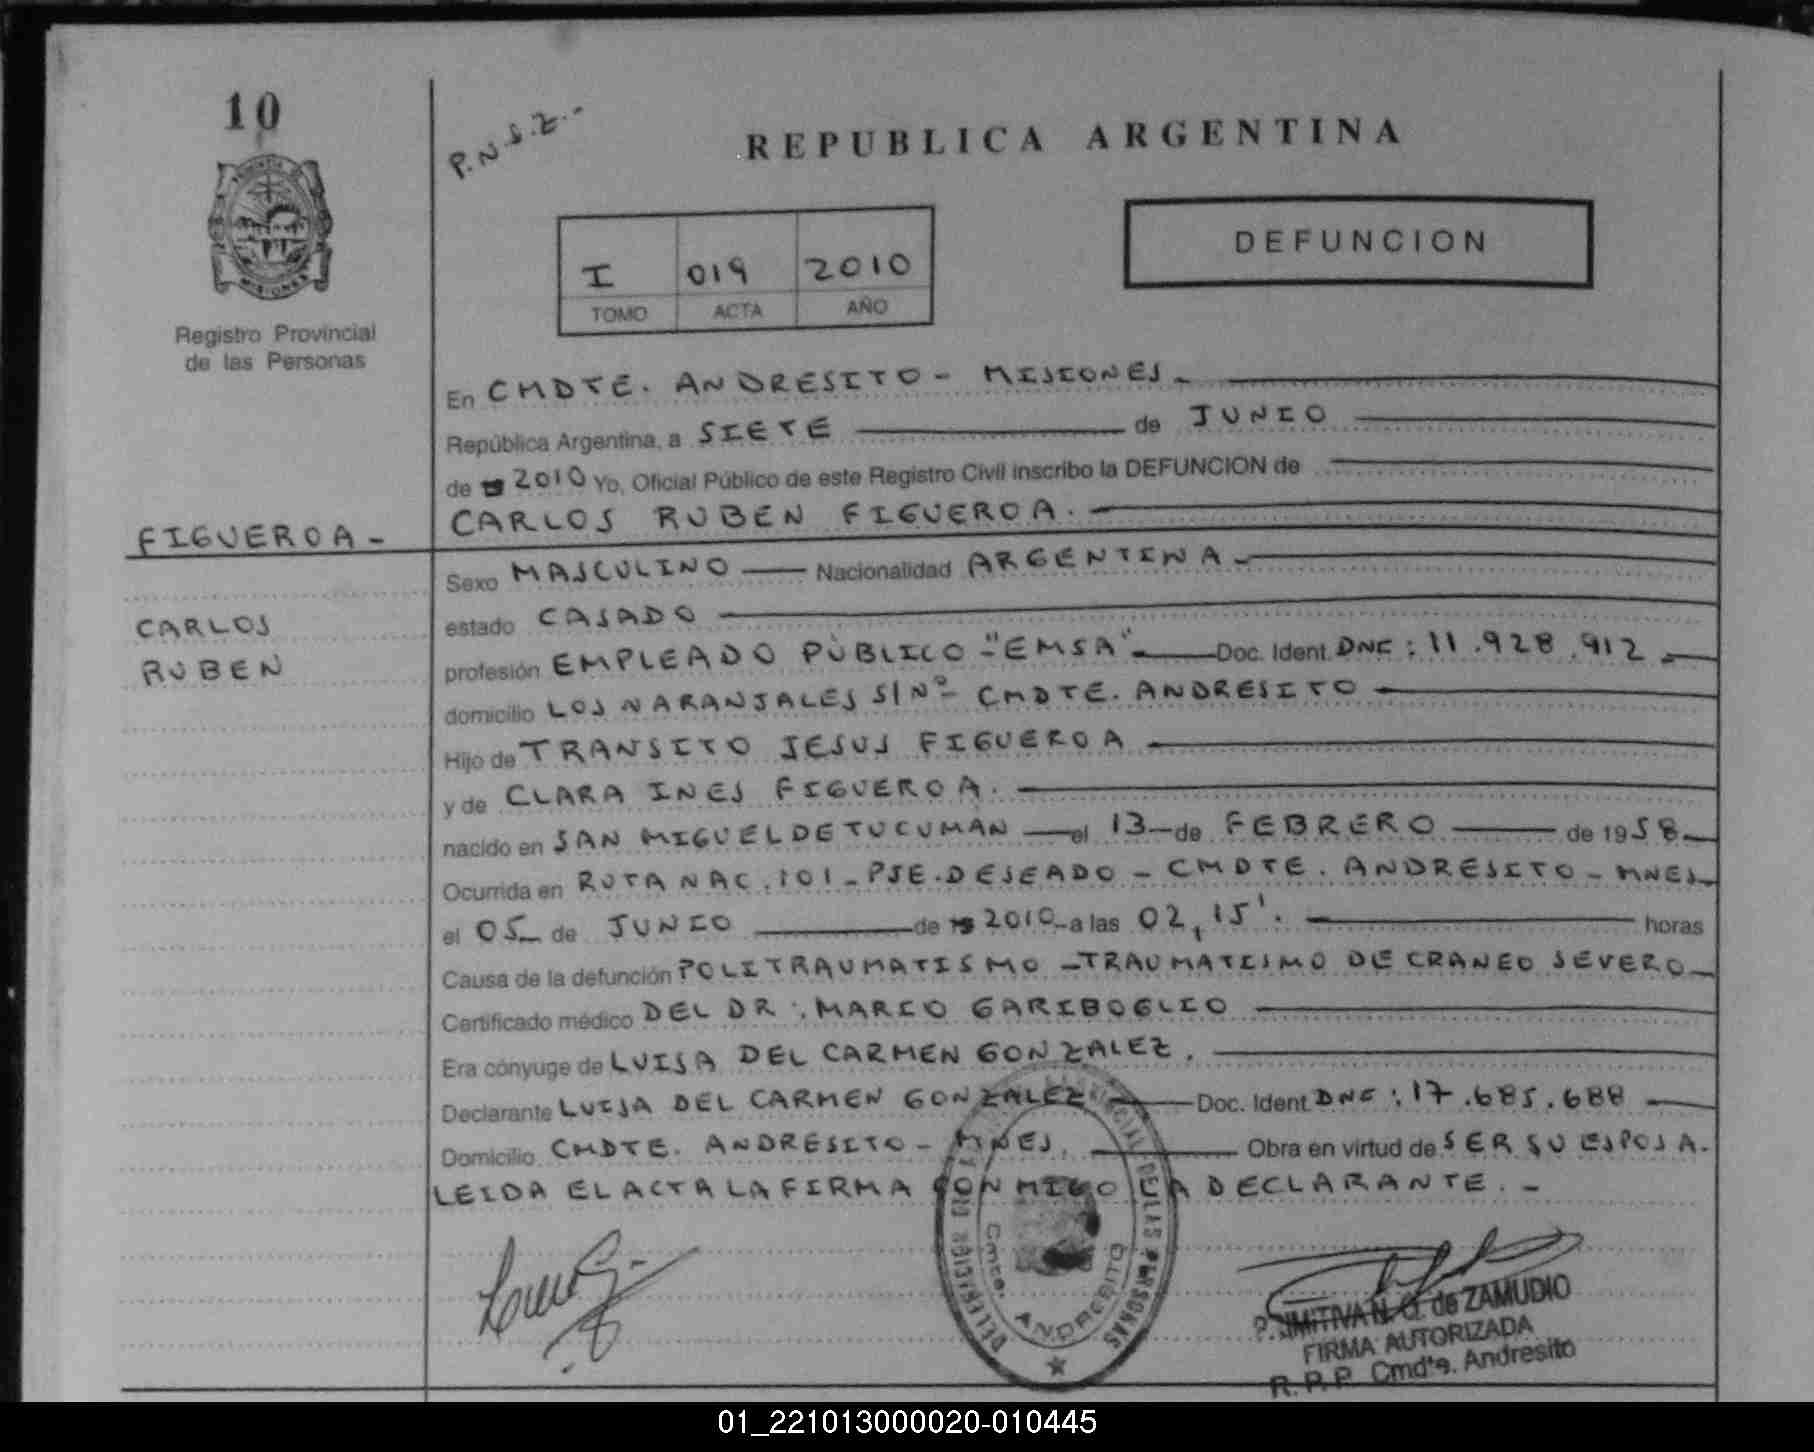 10
P.N.S.Z.-
REPUBLICA ARGENTINA
MISIONES
Registro Provincial
de las Personas
I 019 2010
TOMO ACTA AÑO
DEFUNCION
En CMDTE. ANDRESITO - MISIONES.
República Argentina, a SIETE de JUNIO
de 2010 Yo, Oficial Público de este Registro Civil inscribo la DEFUNCION de
FIGUEROA -
CARLOS
RUBEN
CARLOS RUBEN FIGUEROA.
Sexo MASCULINO Nacionalidad ARGENTINA
estado CASADO
profesión EMPLEADO PÚBLICO-"EMSA" Doc. Ident. DNI: 11.928.912.
domicilio LOS NARANJALES S/Nº- CMDTE. ANDRESITO
Hijo de TRANSITO JESUS FIGUEROA
y de CLARA INES FIGUEROA.
nacido en SAN MIGUEL DE TUCUMAN el 13 de FEBRERO de 1958
Ocurrida en RUTA NAC. 101 - PJE. DESEADO - CMDTE. ANDRESITO - MNES
el 05 de JUNIO de 2010 a las 02,15'. horas
Causa de la defunción POLITRAUMATISMO - TRAUMATISMO DE CRANEO SEVERO
Certificado médico DEL DR: MARIO GARIBOGLIO
Era cónyuge de LUISA DEL CARMEN GONZALEZ.
Declarante LUISA DEL CARMEN GONZALEZ Doc. Ident. DNI: 17.685.688
Domicilio CMDTE. ANDRESITO - MNES. Obra en virtud de SER SU ESPOSA.
LEIDA EL ACTA LA FIRMA CONMIGO LA DECLARANTE. -
DE LAS PERSONAS
Cmte. ANDRESITO
PRIMITIVA N. G. de ZAMUDIO
FIRMA AUTORIZADA
R. P. P. Cmdte. Andresito
01_221013000020-010445